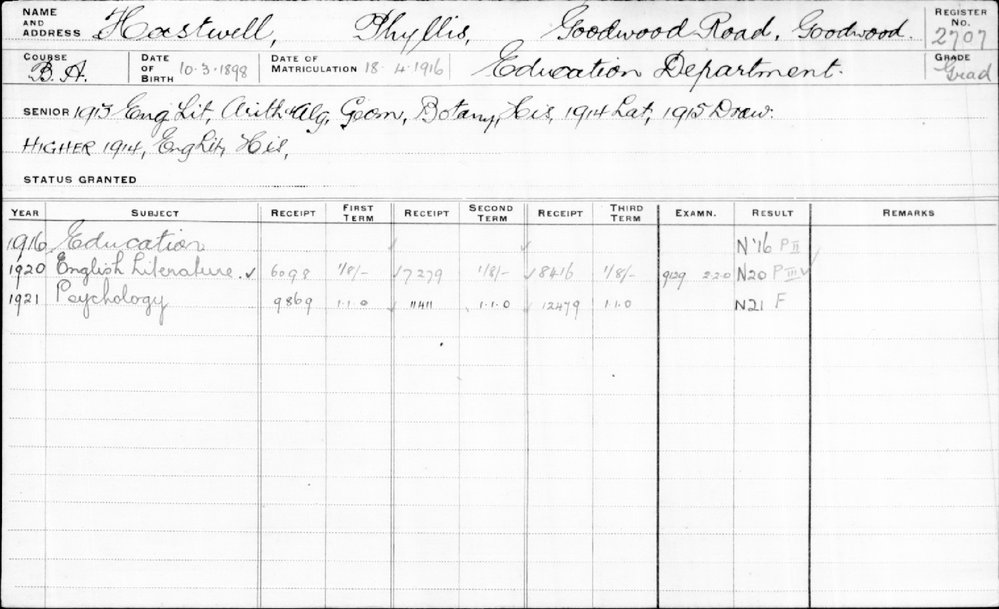 NAME AND ADDRESS Hastwell, Phyllis, Goodwood Road, Goodwood. REGISTER No. 2707
COURSE B.A. DATE OF BIRTH 10.3.1898 DATE OF MATRICULATION 18.4.1916 Education Department. GRADE Grad
SENIOR 1913 Eng Lit, Arith & Alg, Geom, Botany, His, 1914 Lat, 1915 Draw.
HIGHER 1914, Eng Lit, His,
STATUS GRANTED
YEAR SUBJECT RECEIPT FIRST TERM RECEIPT SECOND TERM RECEIPT THIRD TERM EXAMN. RESULT REMARKS
1916 Education ✓ ✓ N'16 P II
1920 English Literature ✓ 6098 1/8/- ✓ 7279 1/8/- ✓ 8416 1/8/- 9129 2.2.0 N20 P III ✓
1921 Psychology 9869 1.1.0 ✓ 11411 1.1.0 ✓ 12479 1.1.0 N21 F